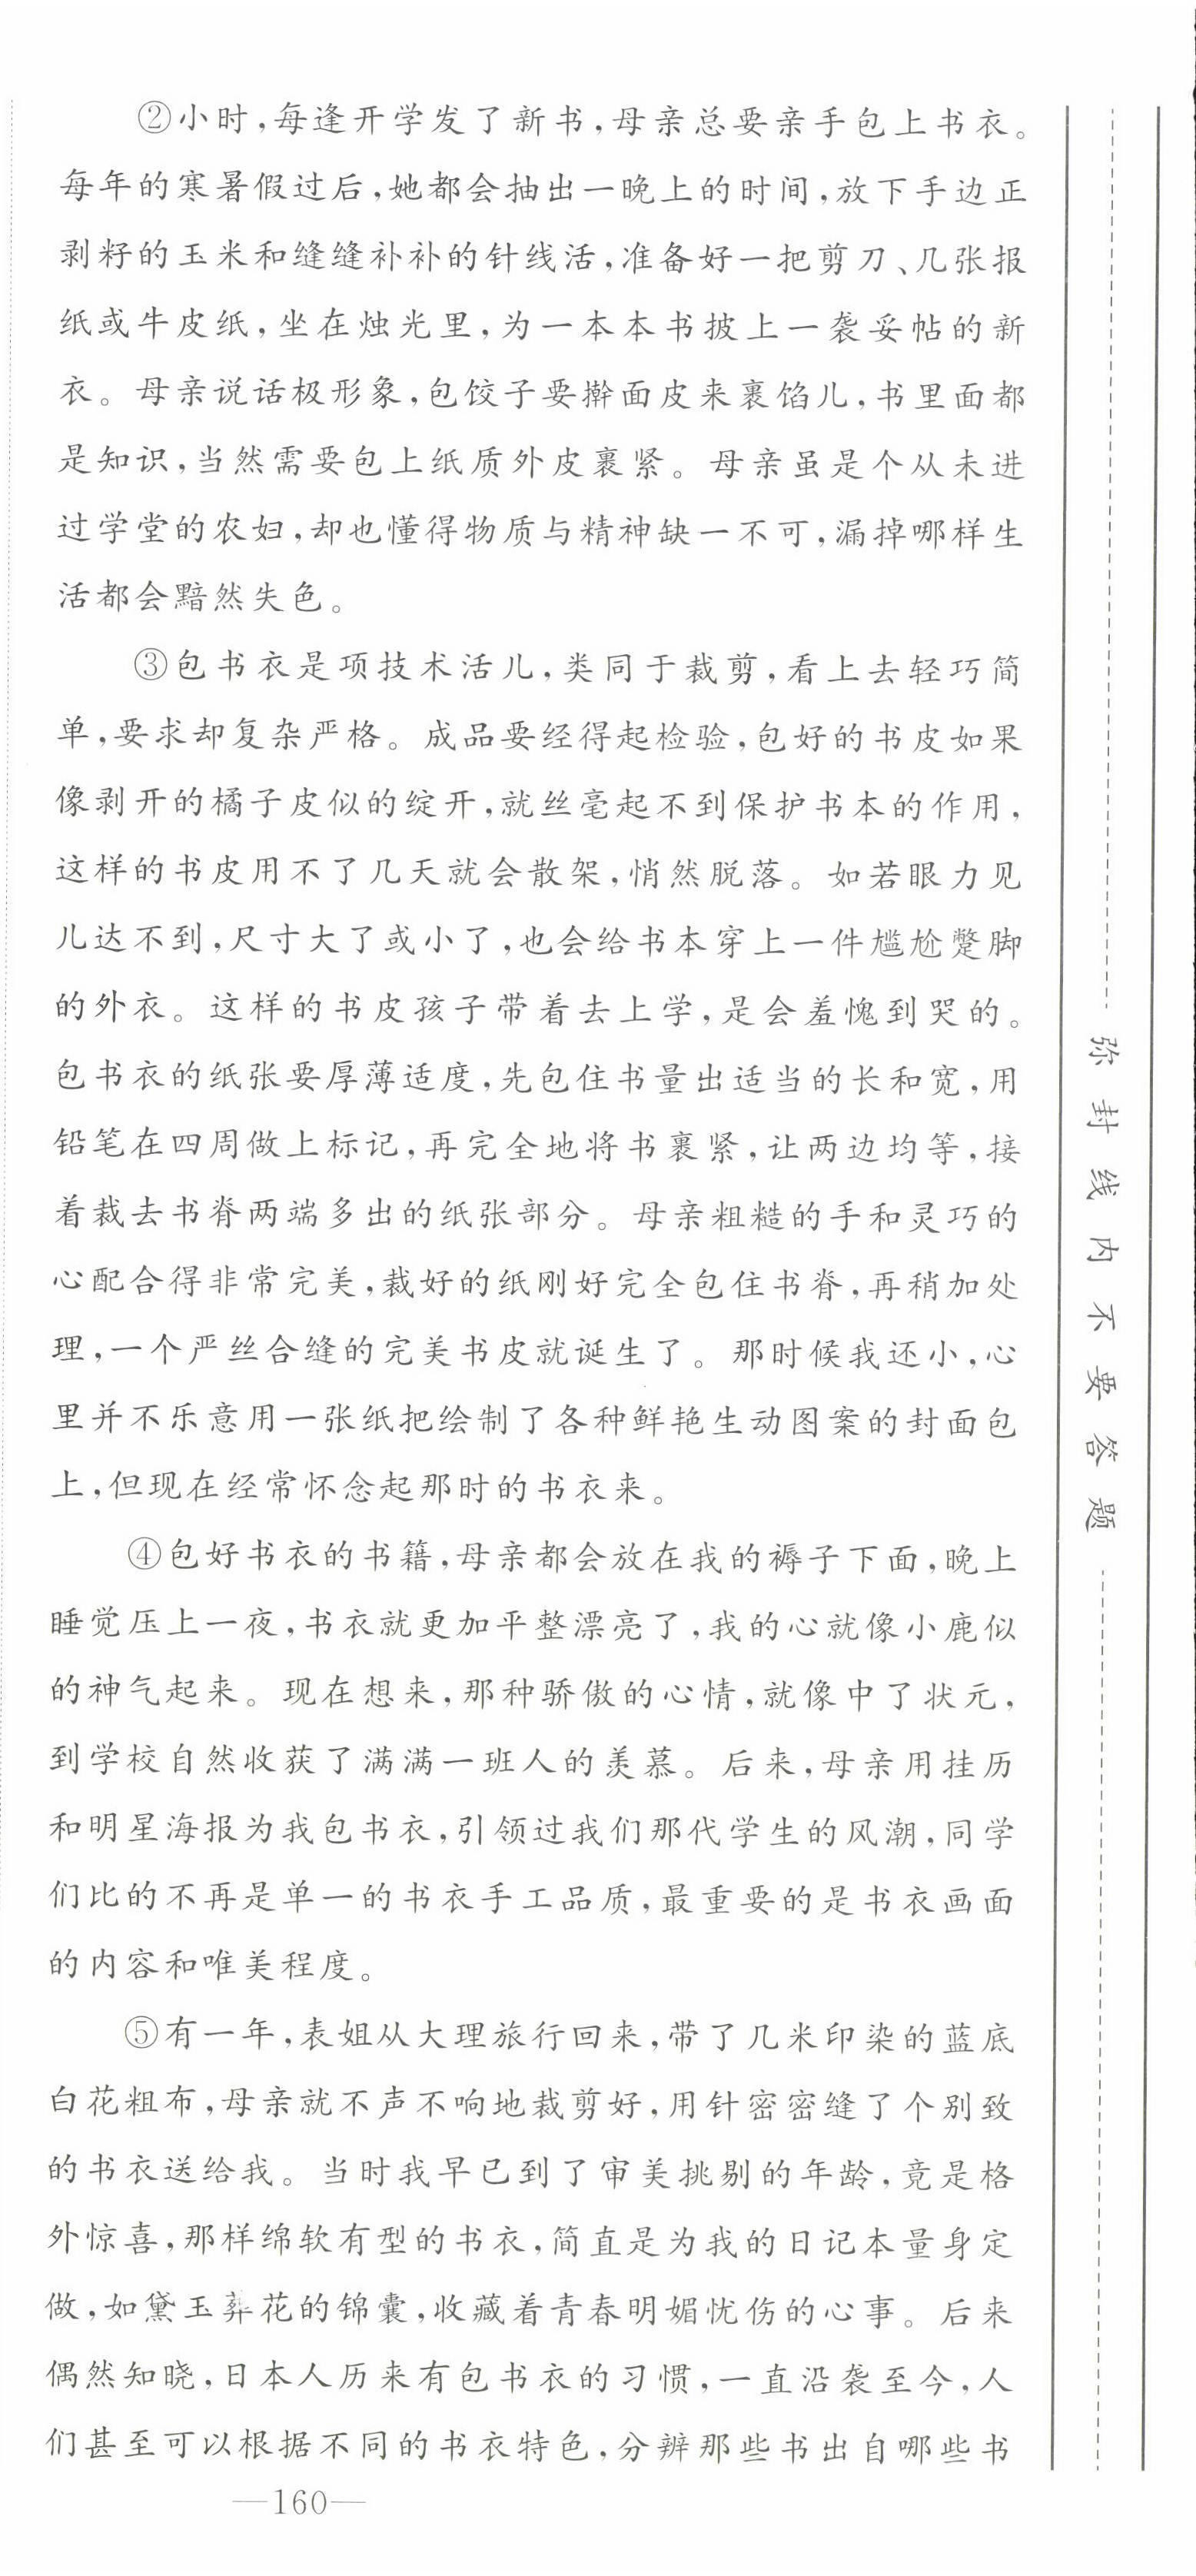 ②小时,每逢开学发了新书,母亲总要亲手包上书衣。
每年的寒暑假过后,她都会抽出一晚上的时间,放下手边正
剥籽的玉米和缝缝补补的针线活,准备好一把剪刀、几张报
纸或牛皮纸,坐在烛光里,为一本本书披上一袭妥帖的新
衣。母亲说话极形象,包饺子要擀面皮来裹馅儿,书里面都
是知识,当然需要包上纸质外皮裹紧。母亲虽是个从未进
过学堂的农妇,却也懂得物质与精神缺一不可,漏掉哪样生
活都会黯然失色。
③包书衣是项技术活儿,类同于裁剪,看上去轻巧简
单,要求却复杂严格。成品要经得起检验,包好的书皮如果
像剥开的橘子皮似的绽开,就丝毫起不到保护书本的作用,
这样的书皮用不了几天就会散架,悄然脱落。如若眼力见
儿达不到,尺寸大了或小了,也会给书本穿上一件尴尬蹩脚
的外衣。这样的书皮孩子带着去上学,是会羞愧到哭的。
包书衣的纸张要厚薄适度,先包住书量出适当的长和宽,用
铅笔在四周做上标记,再完全地将书裹紧,让两边均等,接
着裁去书脊两端多出的纸张部分。母亲粗糙的手和灵巧的
心配合得非常完美,裁好的纸刚好完全包住书脊,再稍加处
理,一个严丝合缝的完美书皮就诞生了。那时候我还小,心
里并不乐意用一张纸把绘制了各种鲜艳生动图案的封面包
上,但现在经常怀念起那时的书衣来。
④包好书衣的书籍,母亲都会放在我的褥子下面,晚上
睡觉压上一夜,书衣就更加平整漂亮了,我的心就像小鹿似
的神气起来。现在想来,那种骄傲的心情,就像中了状元,
到学校自然收获了满满一班人的羡慕。后来,母亲用挂历
和明星海报为我包书衣,引领过我们那代学生的风潮,同学
们比的不再是单一的书衣手工品质,最重要的是书衣画面
的内容和唯美程度。
⑤有一年,表姐从大理旅行回来,带了几米印染的蓝底
白花粗布,母亲就不声不响地裁剪好,用针密密缝了个别致
的书衣送给我。当时我早已到了审美挑剔的年龄,竟是格
外惊喜,那样绵软有型的书衣,简直是为我的日记本量身定
做,如黛玉葬花的锦囊,收藏着青春明媚忧伤的心事。后来
偶然知晓,日本人历来有包书衣的习惯,一直沿袭至今,人
们甚至可以根据不同的书衣特色,分辨那些书出自哪些书
—160—
弥封线内不要答题